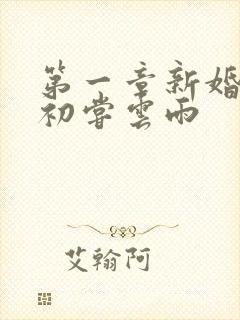 第一章新婚
初嘗雲雨
艾翰阿